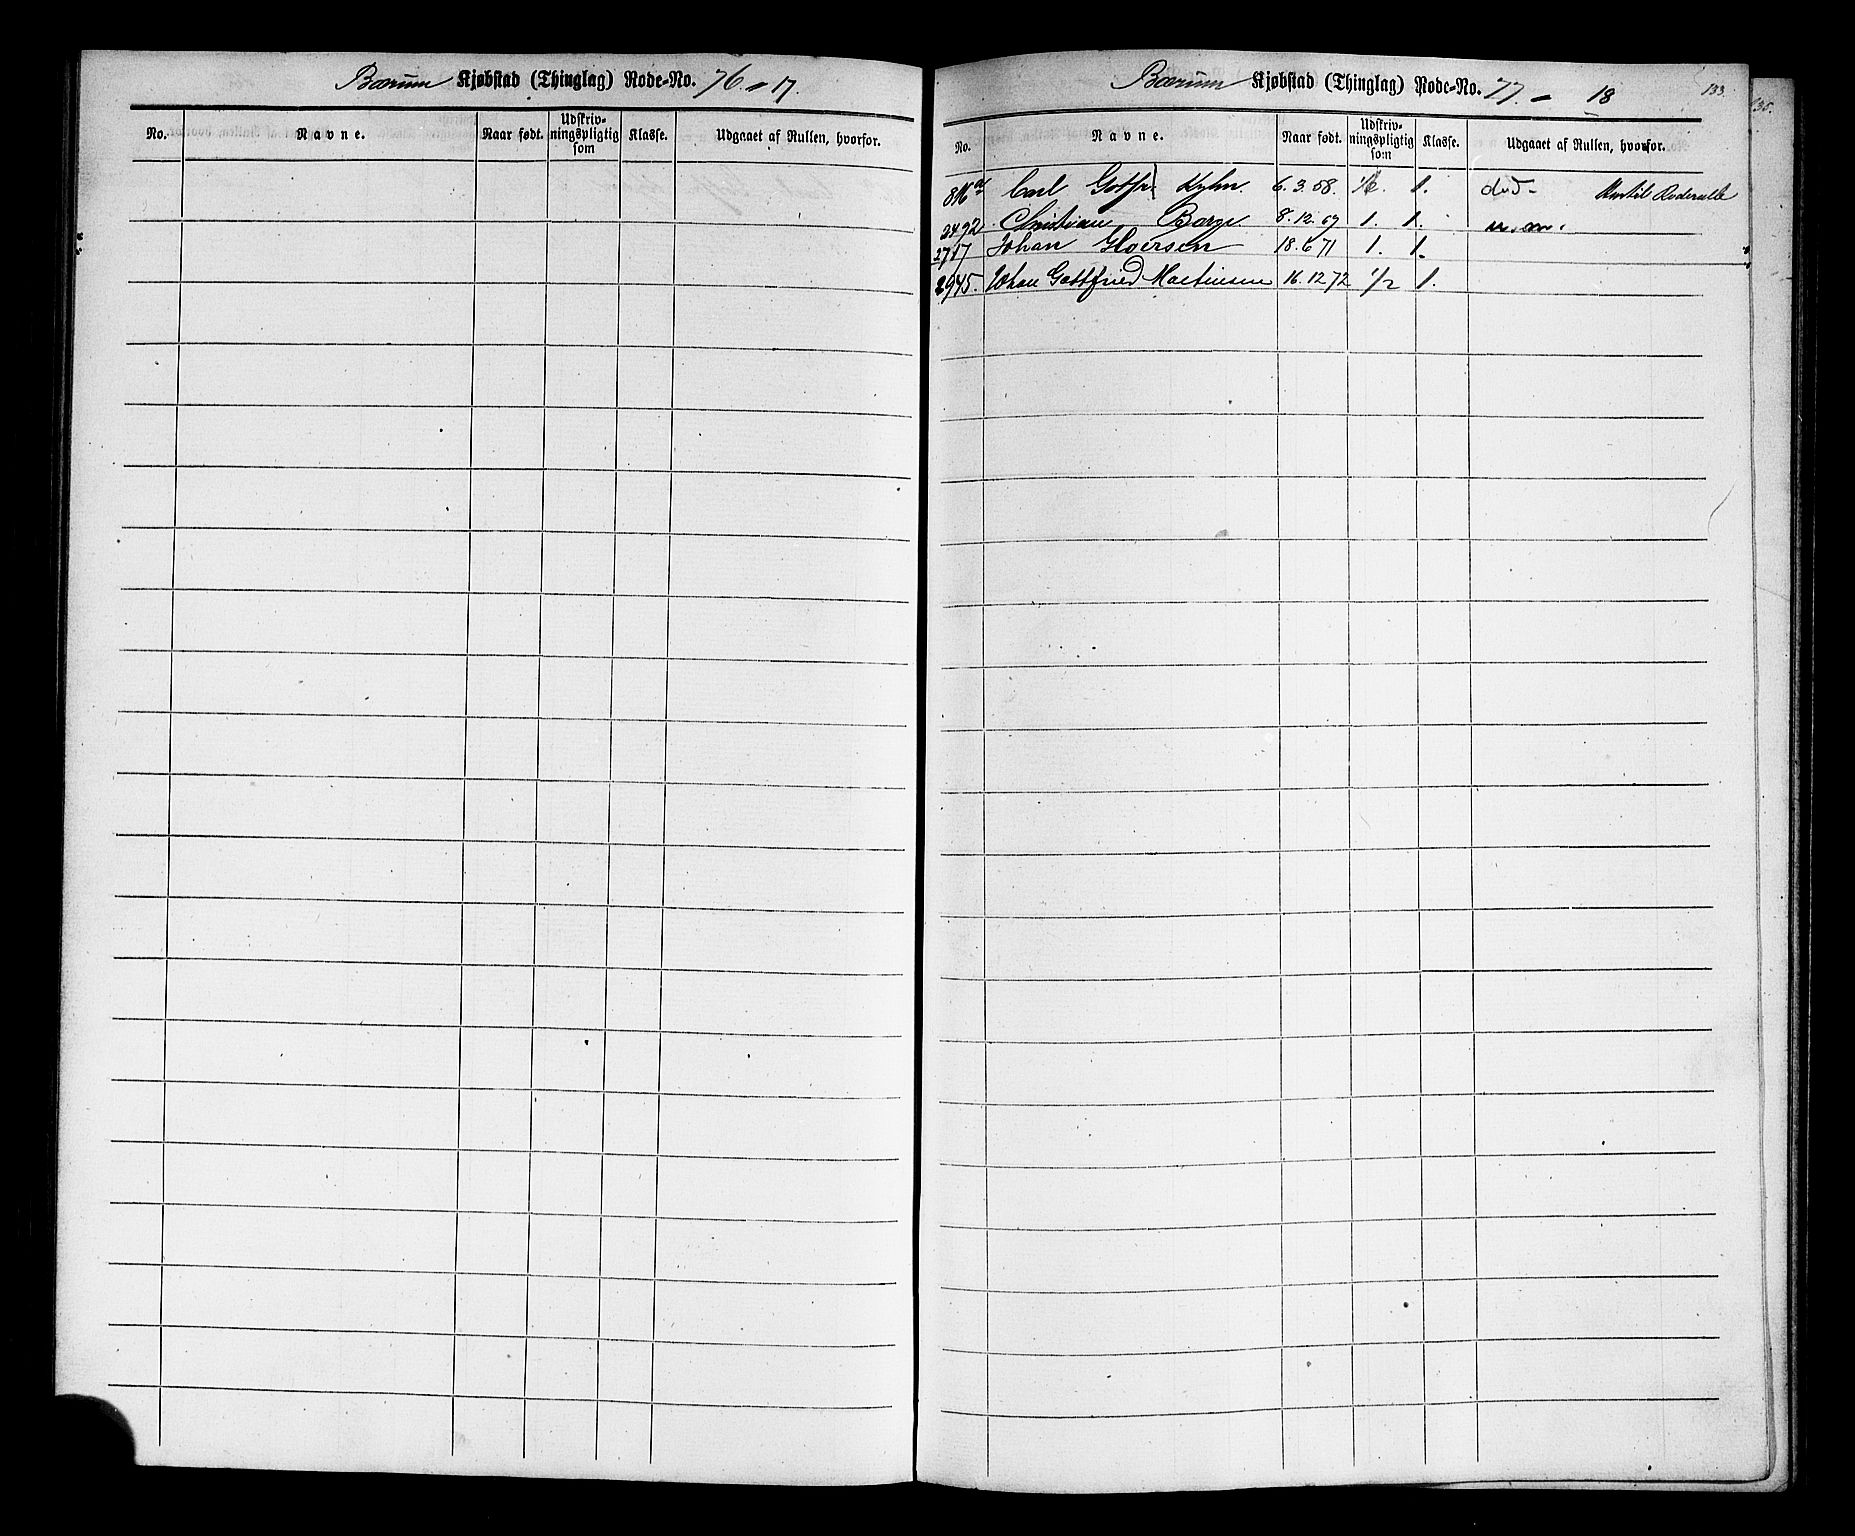 Bærum Kjøbstad (Thinglag) Rode-No. 76. 17.
No. Navne. Naar født. Udskriv-ningspligtig som Klasse. Udgaaet af Rullen, hvorfor.
Bærum Kjøbstad (Thinglag) Rode-No. 77. - 18
133.
135.
No. Navne. Naar født. Udskriv-ningspligtig som Klasse. Udgaaet af Rullen, hvorfor.
Carl Gotfr. Kyhn 6. 3. 58. 1. død -
2492 Christian Borge 8. 12. 69 1. 1.
2717 Johan Iversen 18. 6 71 1. 1.
2945. Johan Gottfried Martinsen 16. 12 72 1/2 1.